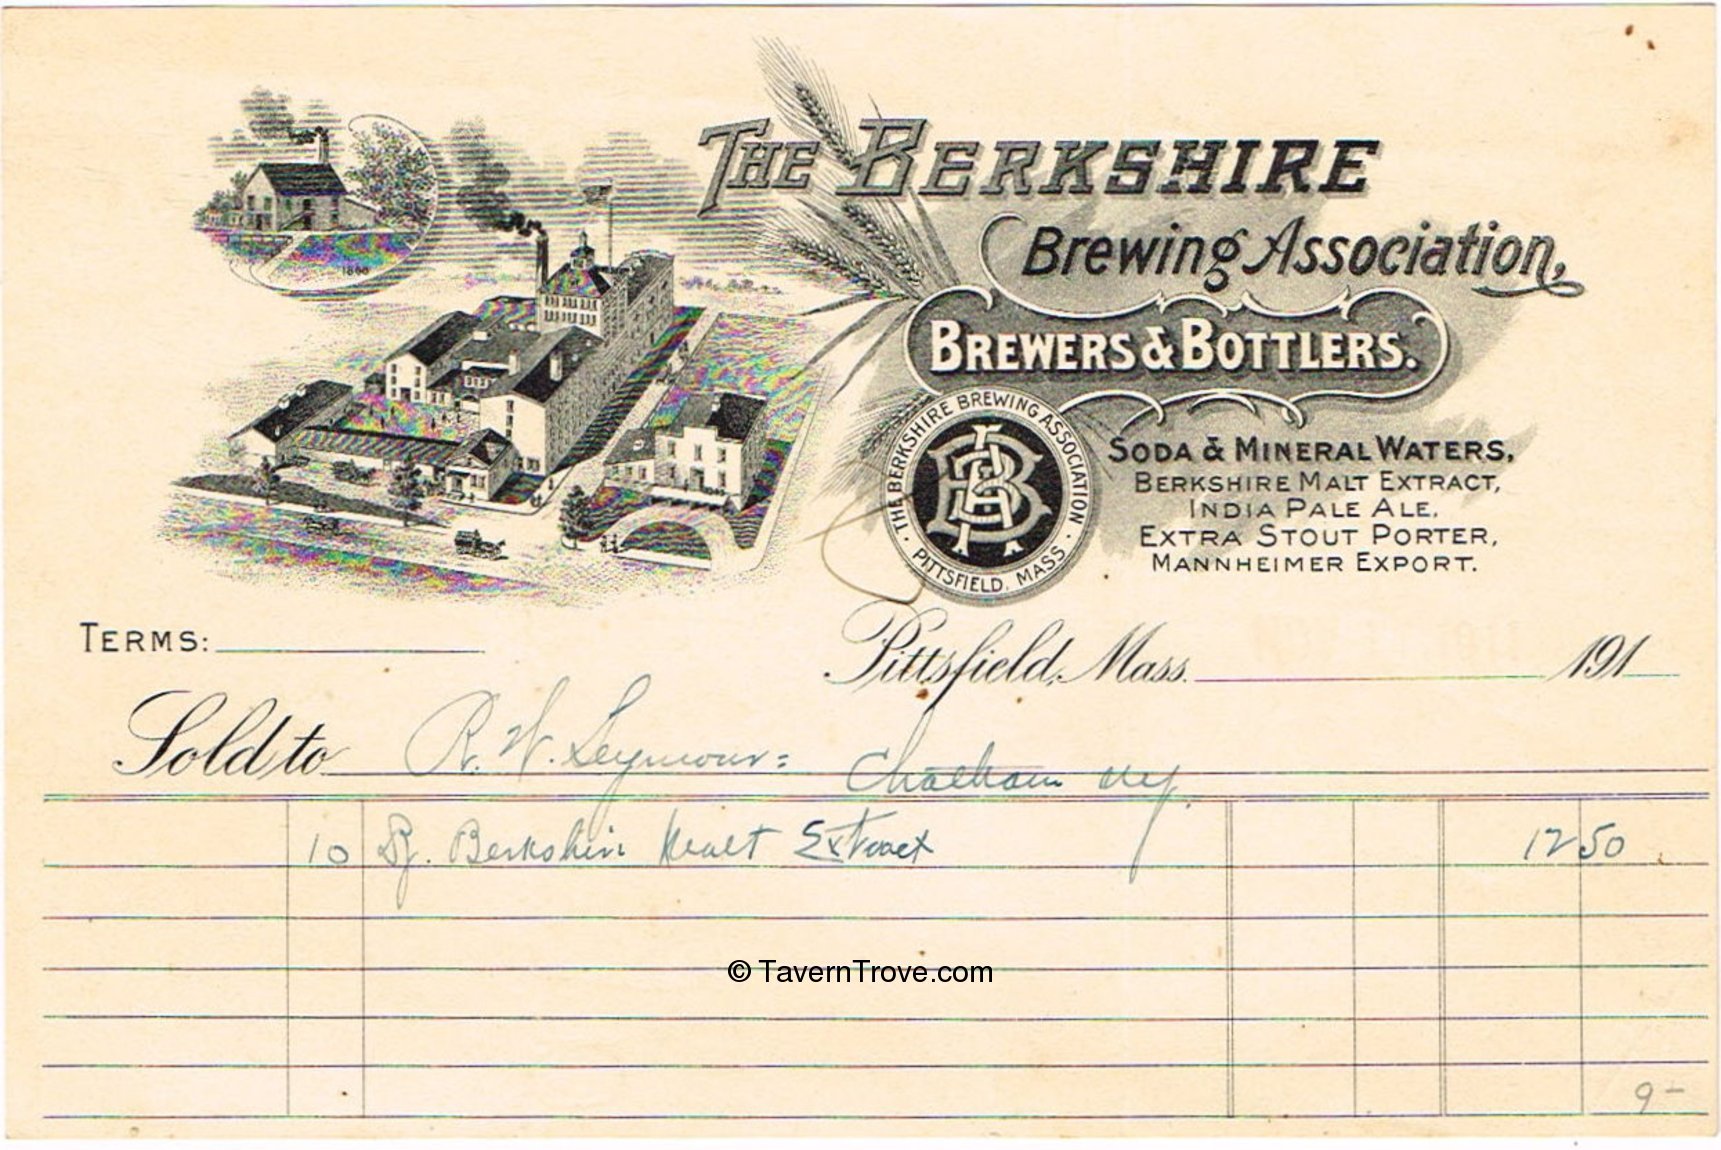 1868
THE BERKSHIRE
Brewing Association,
BREWERS & BOTTLERS.
THE BERKSHIRE BREWING ASSOCIATION · PITTSFIELD, MASS ·
BBA
SODA & MINERAL WATERS,
BERKSHIRE MALT EXTRACT,
INDIA PALE ALE,
EXTRA STOUT PORTER,
MANNHEIMER EXPORT.
TERMS:
Pittsfield, Mass. 191
Sold to R. W. Seymour= Chatham NY.
10 Dz. Berkshire Malt Extract 12 50
© TavernTrove.com
9 –